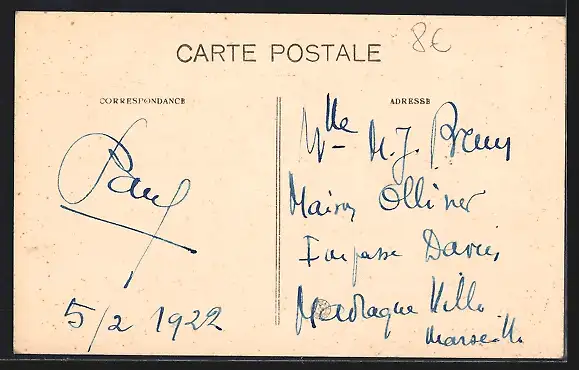 8€
CARTE POSTALE
CORRESPONDANCE
ADRESSE
Paul
5/2 1922
Mlle M. J. Brun
Maison Ollivier
Impasse Davin
Madrague Ville
Marseille